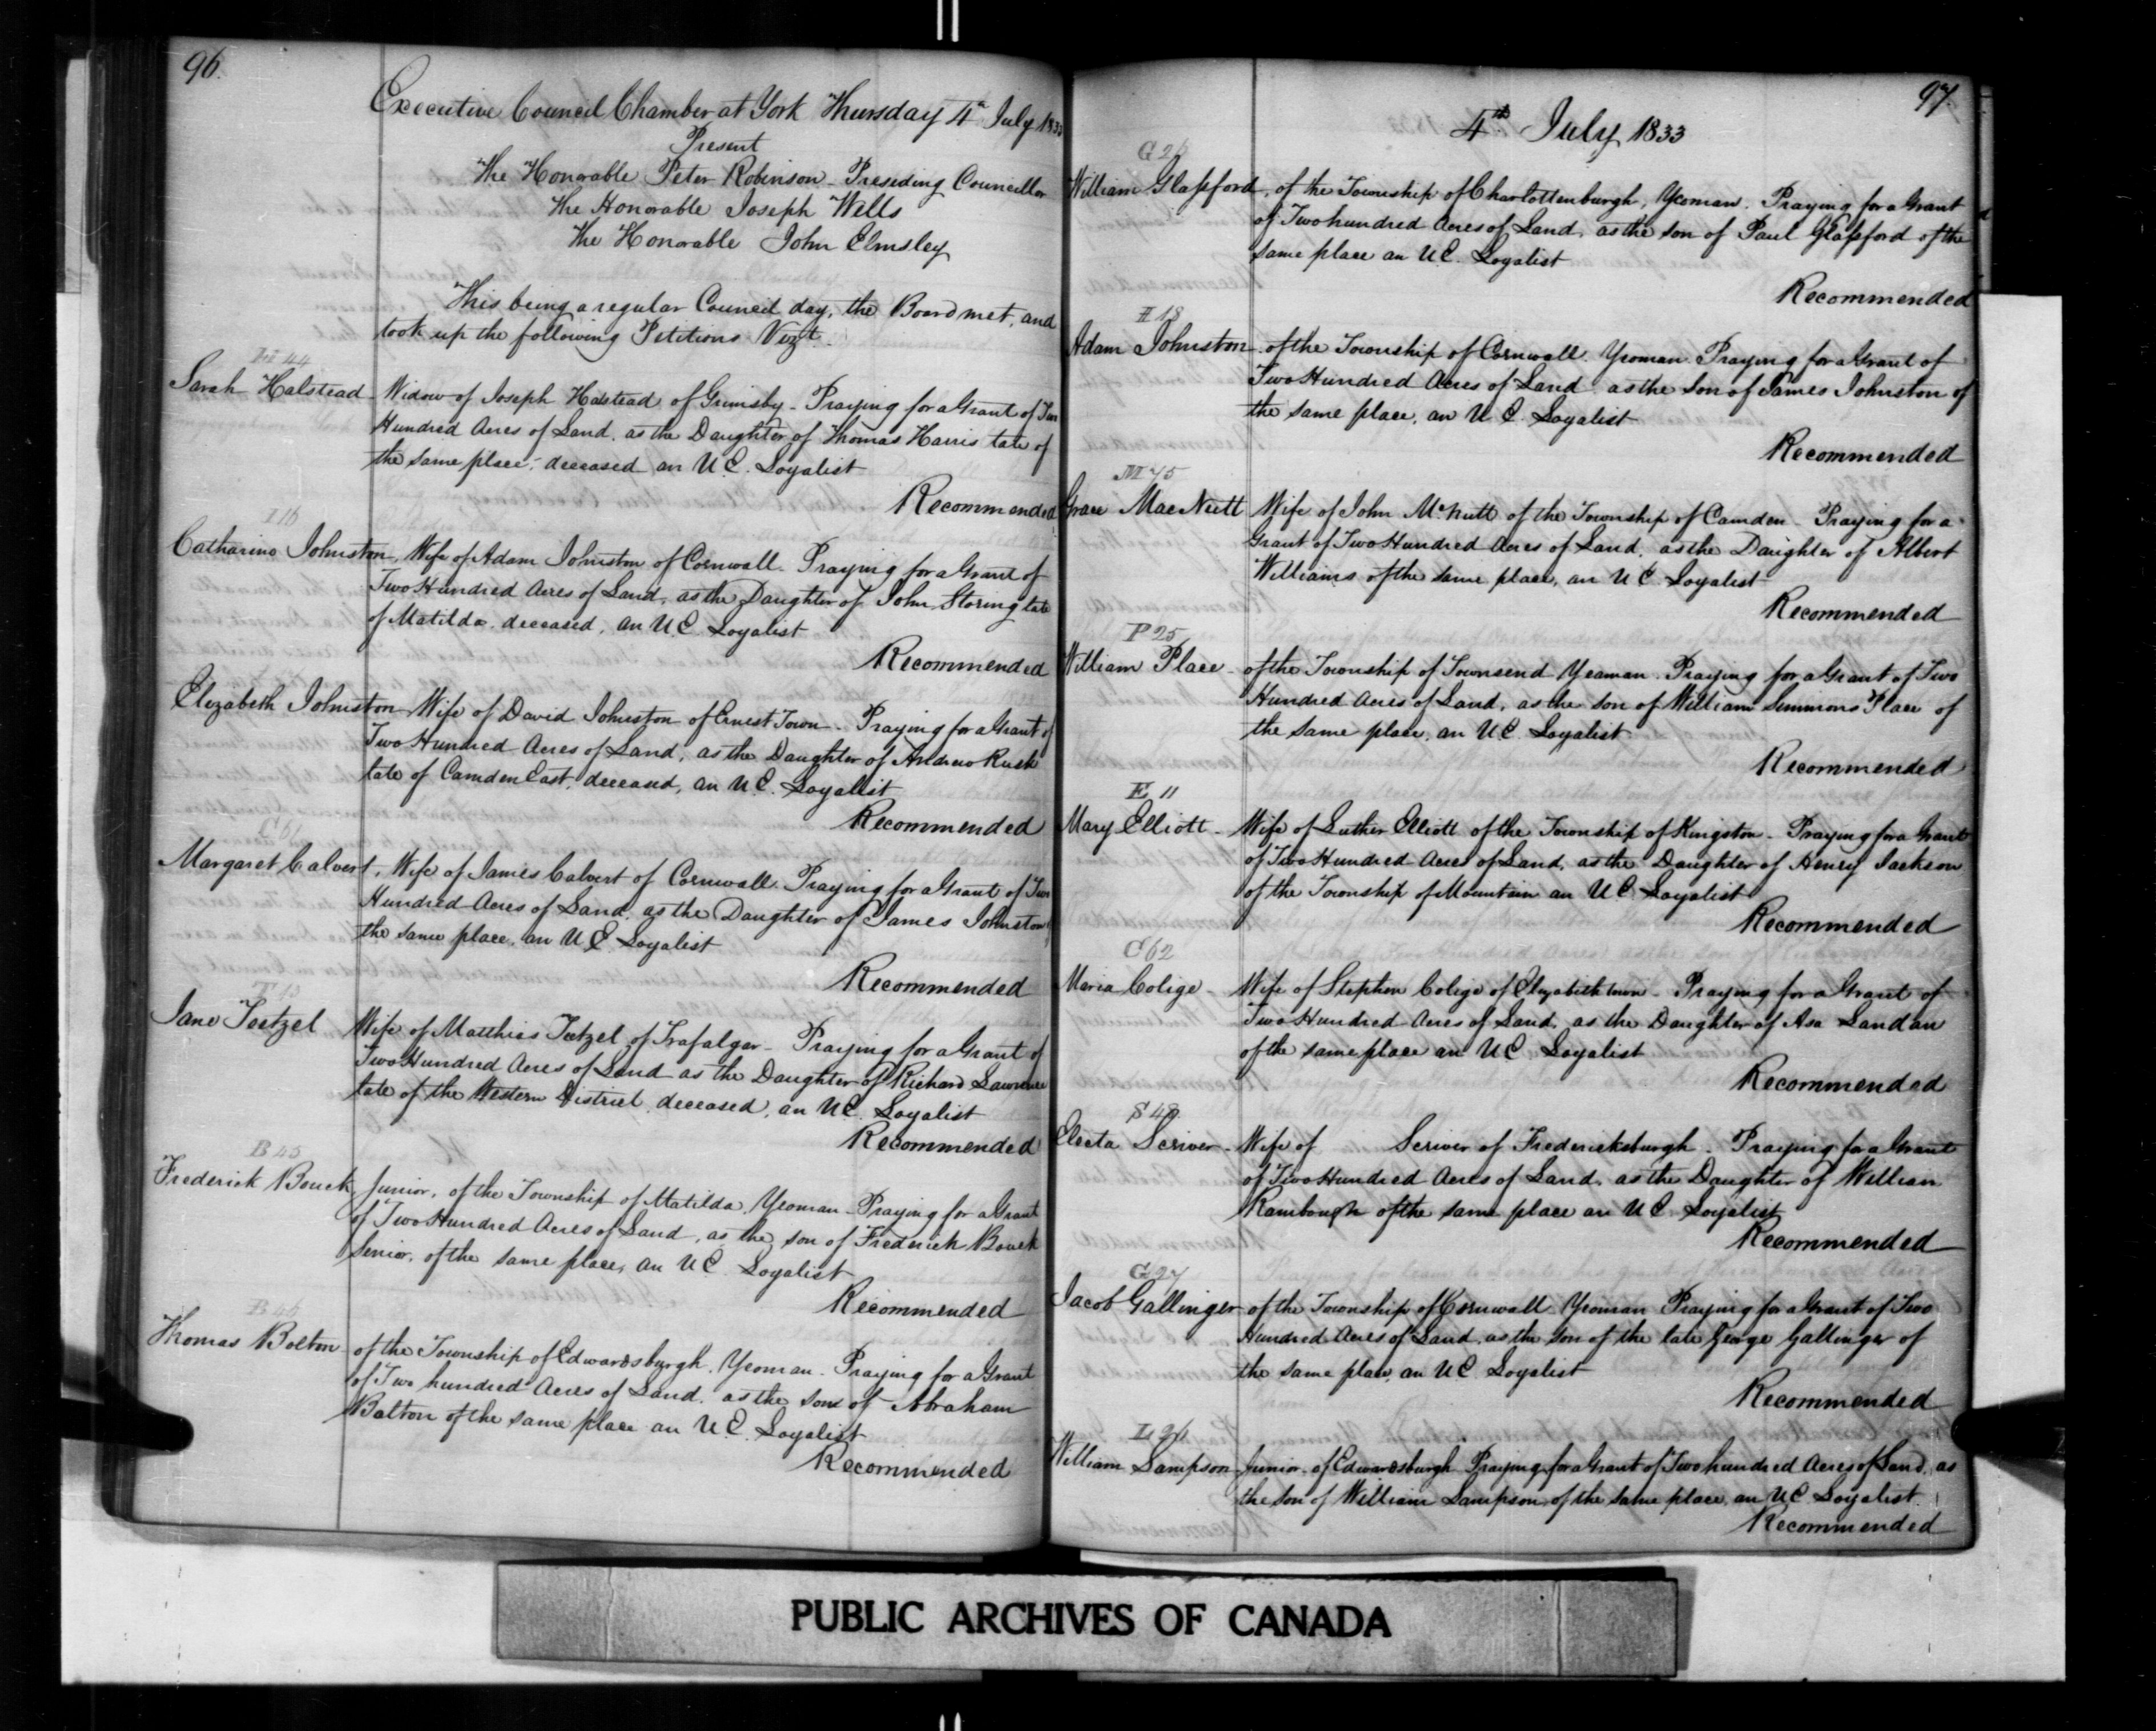 96.
Executive Council Chamber at York Thursday 4th July 1833
Present
The Honorable Peter Robinson - Presiding Councillor
The Honorable Joseph Wells
The Honorable John Elmsley
This being a regular Council day, the Board met, and
took up the following Petitions Vizt.
H 44
Sarah Halstead - Widow of Joseph Halstead of Grimsby - Praying for a Grant of Two
Hundred Acres of Land, as the Daughter of Thomas Harris late of
the same place, deceased an U.E. Loyalist
Recommended
I 16
Catharine Johnston, Wife of Adam Johnston of Cornwall. Praying for a Grant of
Two Hundred Acres of Land, as the Daughter of John Storing late
of Matilda, deceased, an U E Loyalist
Recommended
Elizabeth Johnston Wife of David Johnston of Ernest Town - Praying for a Grant of
Two Hundred Acres of Land, as the Daughter of Andrew Rush
late of Camden East, deceased, an U.E. Loyalist
Recommended
C 61
Margaret Calvert, Wife of James Calvert of Cornwall. Praying for a Grant of Two
Hundred Acres of Land, as the Daughter of James Johnston of
the same place, an U E Loyalist
Recommended
T 13
Jane Teetzel Wife of Matthias Teetzel of Trafalgar - Praying for a Grant of
Two Hundred Acres of Land as the Daughter of Richard Lawrence
late of the Western District, deceased, an U E. Loyalist
Recommended
B 45
Frederick Bouck Junior, of the Township of Matilda, Yeoman - Praying for a Grant
of Two Hundred Acres of Land, as the son of Frederick Bouck
Senior, of the same place, an U E Loyalist
Recommended
B 46
Thomas Bolton of the Township of Edwardsburgh, Yeoman - Praying for a Grant
of Two hundred Acres of Land, as the son of Abraham
Bolton of the same place an U.E. Loyalist
Recommended
97.
4th July 1833
G 26
William Glassford, of the Township of Charlottenburgh, Yeoman. Praying for a Grant
of Two hundred Acres of Land, as the son of Paul Glassford of the
same place an U E. Loyalist
Recommended
I 18
Adam Johnston of the Township of Cornwall. Yeoman. Praying for a Grant of
Two Hundred Acres of Land as the Son of James Johnston of
the same place, an U E. Loyalist
Recommended
M 75
Grace MacNutt Wife of John McNutt of the Township of Camden - Praying for a
Grant of Two Hundred Acres of Land, as the Daughter of Albert
Williams of the same place, an U E Loyalist
Recommended
P 25
William Place - of the Township of Townsend Yeaman. Praying for a Grant of Two
Hundred Acres of Land, as the son of William Simmons Place of
the same place, an U E Loyalist
Recommended
E 11
Mary Elliott - Wife of Luther Elliott of the Township of Kingston - Praying for a Grant
of Two Hundred Acres of Land, as the Daughter of Henry Jackson
of the Township of Mountain an U E Loyalist
Recommended
C 62
Maria Colige - Wife of Stephen Colige of Elizabeth town - Praying for a Grant of
Two Hundred Acres of Land, as the Daughter of Asa Landan
of the same place an U E Loyalist
Recommended
S 48
Electa Scriver - Wife of Scriver of Fredericksburgh - Praying for a Grant
of Two Hundred Acres of Land, as the Daughter of William
Rambough of the same place an U E. Loyalist
Recommended
G 27
Jacob Gallinger of the Township of Cornwall Yeoman Praying for a Grant of Two
Hundred Acres of Land, as the Son of the late George Gallinger of
the same place, an U E Loyalist
Recommended
L 26
William Lampson Junior of Edwardsburgh Praying for a Grant of Two hundred Acres of Land, as
the Son of William Lampson of the same place, an U E Loyalist.
Recommended
PUBLIC ARCHIVES OF CANADA